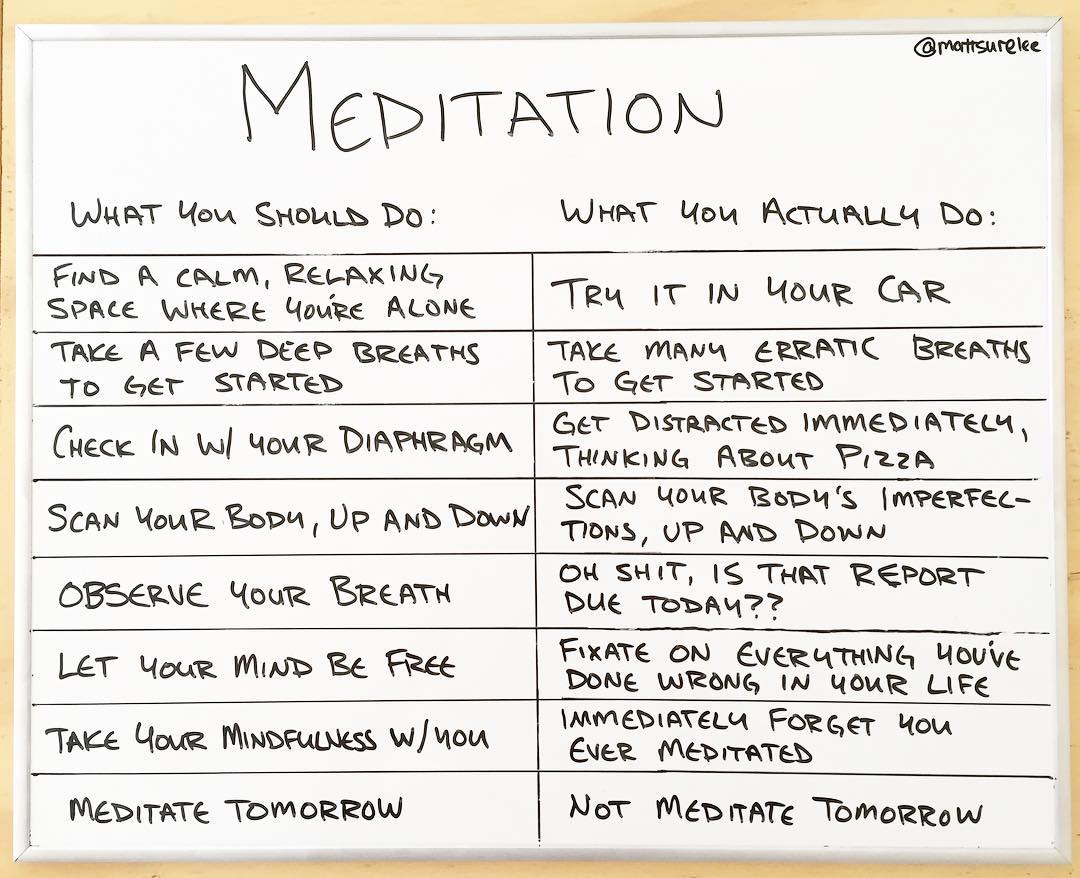 @mattsurelee
MEDITATION
WHAT YOU SHOULD DO:
WHAT YOU ACTUALLY DO:
FIND A CALM, RELAXING
SPACE WHERE YOU'RE ALONE
TRY IT IN YOUR CAR
TAKE A FEW DEEP BREATHS
TO GET STARTED
TAKE MANY ERRATIC BREATHS
TO GET STARTED
CHECK IN W/ YOUR DIAPHRAGM
GET DISTRACTED IMMEDIATELY,
THINKING ABOUT PIZZA
SCAN YOUR BODY, UP AND DOWN
SCAN YOUR BODY'S IMPERFEC-
TIONS, UP AND DOWN
OBSERVE YOUR BREATH
OH SHIT, IS THAT REPORT
DUE TODAY??
LET YOUR MIND BE FREE
FIXATE ON EVERYTHING YOU'VE
DONE WRONG IN YOUR LIFE
TAKE YOUR MINDFULNESS W/YOU
IMMEDIATELY FORGET YOU
EVER MEDITATED
MEDITATE TOMORROW
NOT MEDITATE TOMORROW